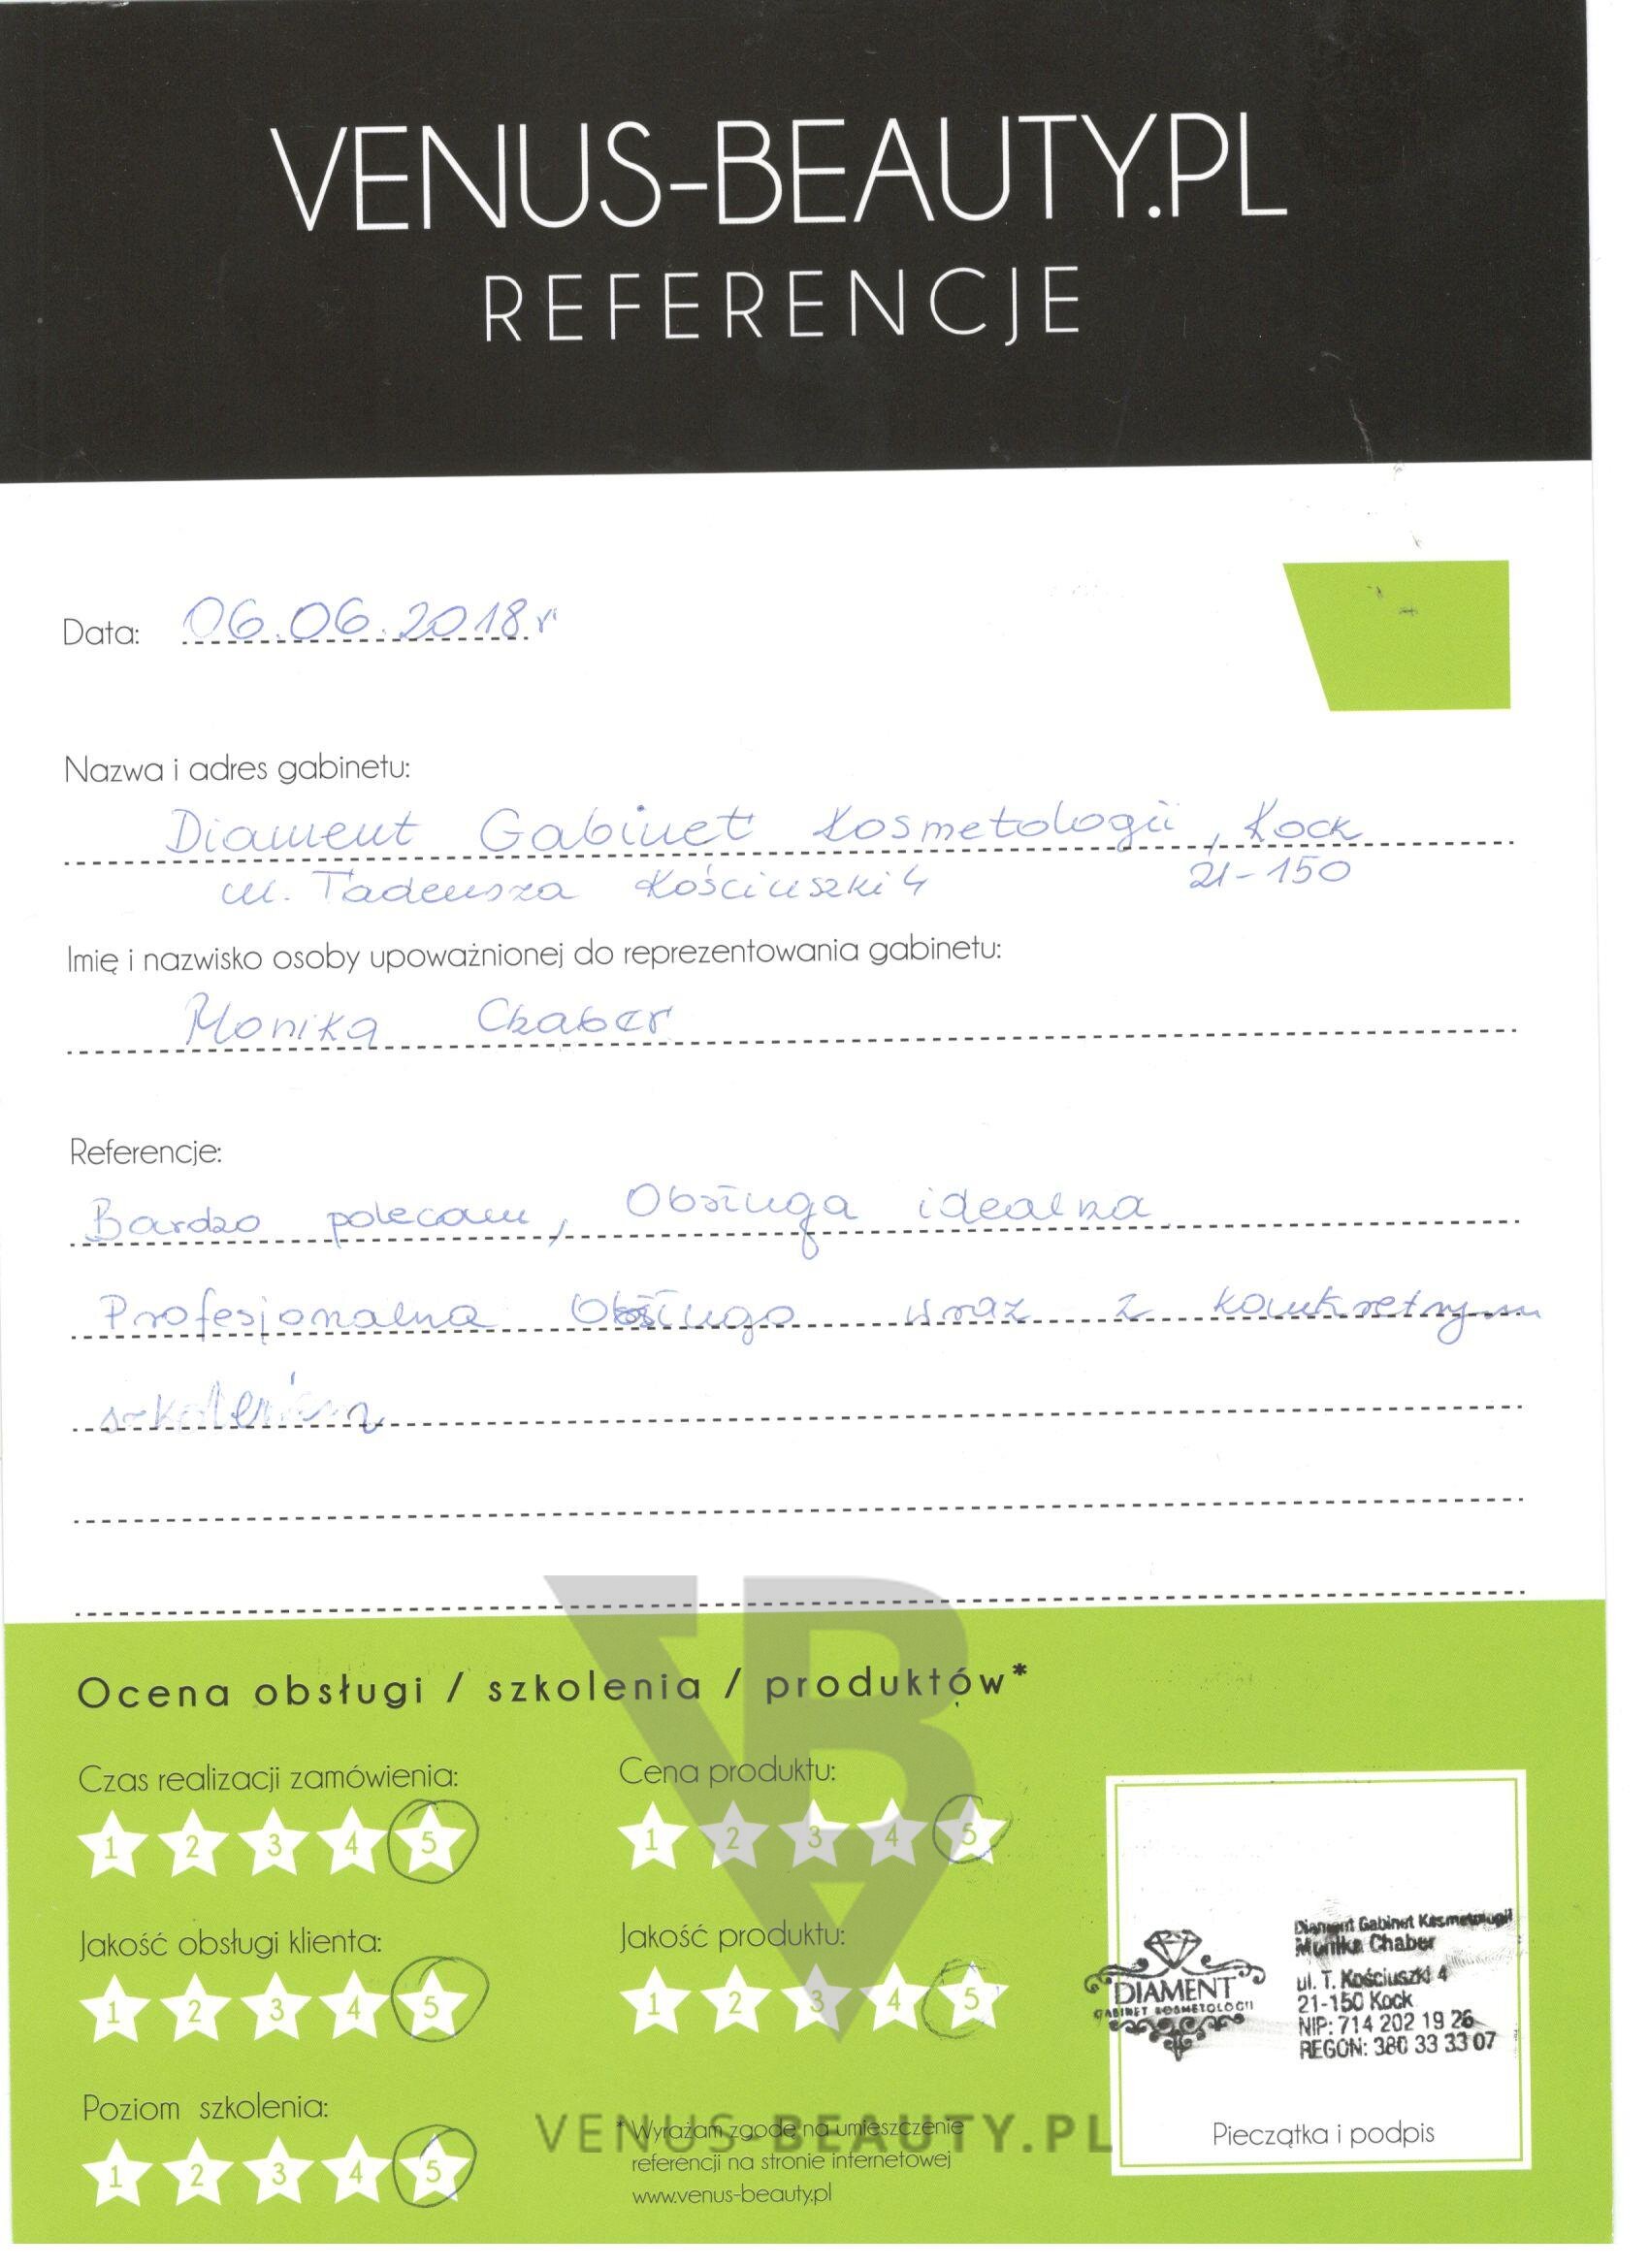 VENUS-BEAUTY.PL
REFERENCJE
Data: 06.06.2018r
Nazwa i adres gabinetu:
Diament Gabinet Kosmetologii, Kock
ul. Tadeusza Kościuszki 4 21-150
Imię i nazwisko osoby upoważnionej do reprezentowania gabinetu:
Monika Chaber
Referencje:
Bardzo polecam, Obsługa idealna
Profesjonalna Obsługa wraz z konkretnym
szkoleniem
Ocena obsługi / szkolenia / produktów*
Czas realizacji zamówienia:
1 2 3 4 5
Cena produktu:
1 2 3 4 5
Jakość obsługi klienta:
1 2 3 4 5
Jakość produktu:
1 2 3 4 5
Poziom szkolenia:
1 2 3 4 5
* Wyrażam zgodę na umieszczenie
referencji na stronie internetowej
www.venus-beauty.pl
VENUS-BEAUTY.PL
DIAMENT
GABINET KOSMETOLOGII
Diament Gabinet Kosmetologii
Monika Chaber
ul. T. Kościuszki 4
21-150 Kock
NIP: 714 202 19 26
REGON: 380 33 33 07
Pieczątka i podpis
VBA